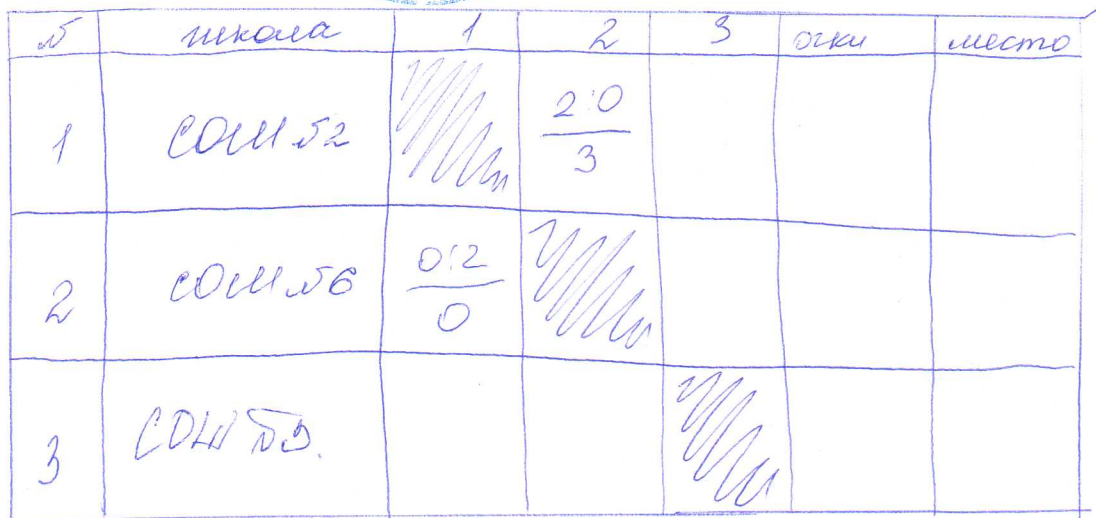 № школа 1 2 3 очки место
1 СОШ №2 2:0
3
2 СОШ №6 0:2
0
3 СОШ